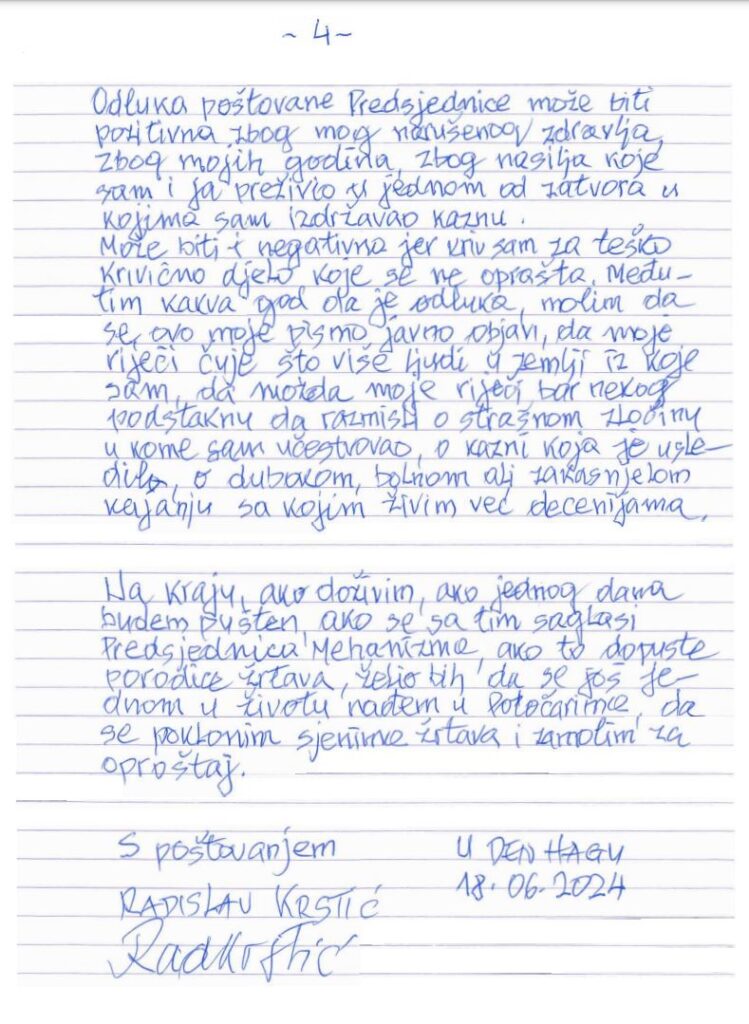 ~ 4 ~
Odluka poštovane Predsjednice može biti
pozitivna zbog mog narušenog zdravlja,
zbog mojih godina, zbog nasilja koje
sam i ja preživio u jednom od zatvora u
kojima sam izdržavao kaznu.
Može biti i negativna jer kriv sam za teško
krivično djelo koje se ne oprašta. Među-
tim kakva god da je odluka, molim da
se, ovo moje pismo javno objavi, da moje
riječi čuje što više ljudi u zemlji iz koje
sam, da možda moje riječi, bar nekog
podstaknu da razmisli o strašnom zločinu
u kome sam učestvovao, o kazni koja je usle-
dila, o dubokom, bolnom ali zakasnjelom
kajanju sa kojim živim već decenijama.
Na kraju, ako doživim, ako jednog dana
budem pušten, ako se sa tim saglasi
Predsjednica Mehanizma, ako to dopuste
porodice žrtava, želio bih da se još je-
dnom u životu nađem u Potočarima, da
se poklonim sjenima žrtava i zamolim za
oproštaj.
S poštovanjem
RADISLAV KRSTIĆ
RadKrstić
U DEN HAGU
18.06.2024